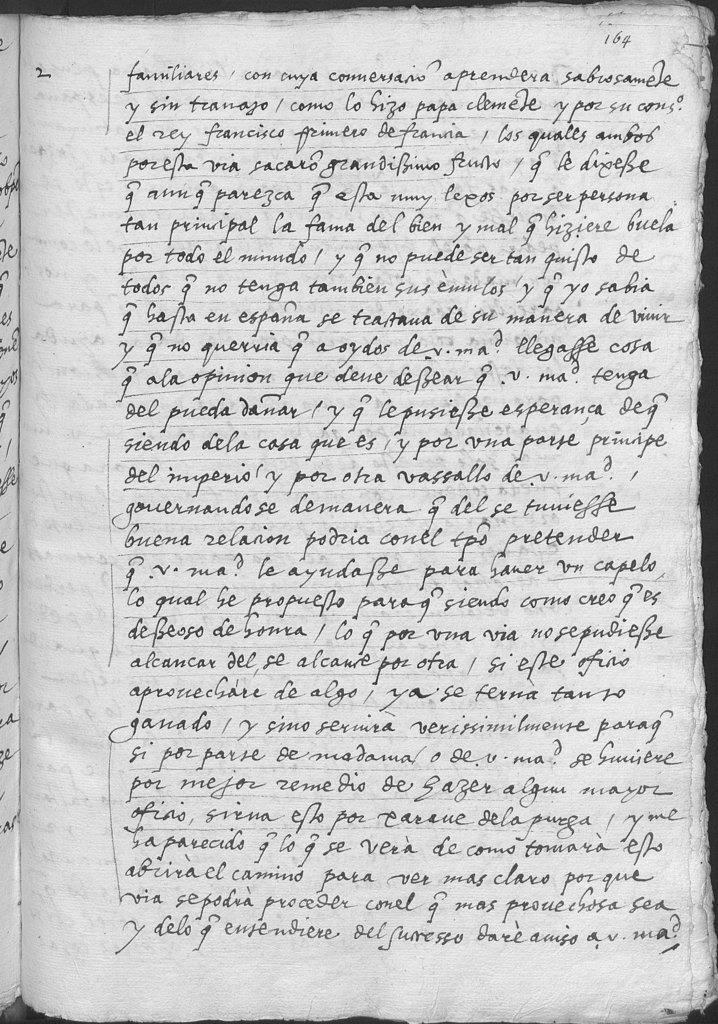 164
2 familiares / con cuya conversaciõ aprendera sabrosamẽte
y sin travajo / como lo hizo papa clemẽte y por su cons.º
el rey francisco primero de francia / los quales ambos
por esta via sacarõ grandissimo fructo / q̃ le dixesse
q̃ aun q̃ parezca q̃ esta muy lexos por ser persona
tan principal la fama del bien y mal q̃ hiziere buela
por todo el mundo / y q̃ no puede ser tan quisto de
todos q̃ no tenga tambien sus èmulos / y q̃ yo sabia
q̃ hasta en españa se trattava de su manera de vivir
y q̃ no querria q̃ a oydos de .v. ma.d llegasse cosa
q̃ a la opinion que deve dessear q̃ .v. ma.d tenga
del pueda dañar / y q̃ le pusiesse esperança de q̃
siendo dela casa que es / y por una parte principe
del imperio / y por otra vassallo de .v. ma.d /
governandose de manera q̃ del se tuviesse
buena relacion podria conel tpõ pretender
q̃ .v. ma.d le ayudasse para haver un capelo,
lo qual he propuesto para q̃ siendo como creo q̃ es
desseoso de honra / lo q̃ por una via no se pudiesse
alcançar del, se alcance por otra / si este oficio
aprovechàre de algo / ya se ternà tanto
ganado / y sino servirà verissimilmente paraq̃
si por parte de madama / o de .v. ma.d se huviere
por mejor remedio de hazer algun mayor
oficio, sirva esto por xarave dela purga / y me
ha parecido q̃ lo q̃ se verà de como tomarà esto
abrirà el camino para ver mas claro por que
via se podrà proceder conel q̃ mas provechosa sea
y delo q̃ entendiere del sucesso darè aviso a .v. ma.d